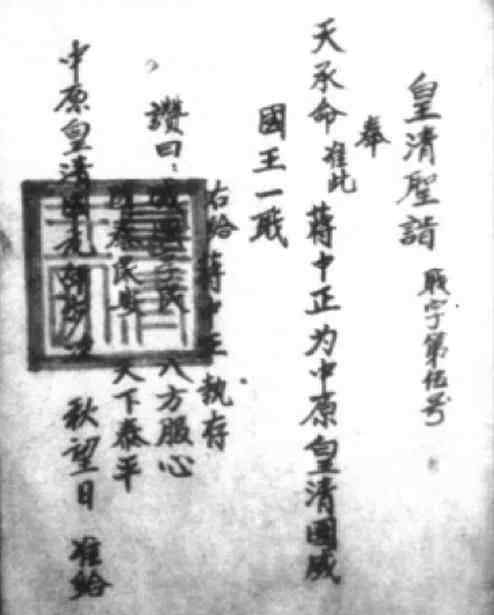 皇清聖詣 职字第伍号
奉
天承命准此 蔣中正为中原皇清國威
國王一職
右給蔣中正执存
讚曰：民 八方服心
國泰民安 天下泰平
中原皇清國元 秋望日 准給